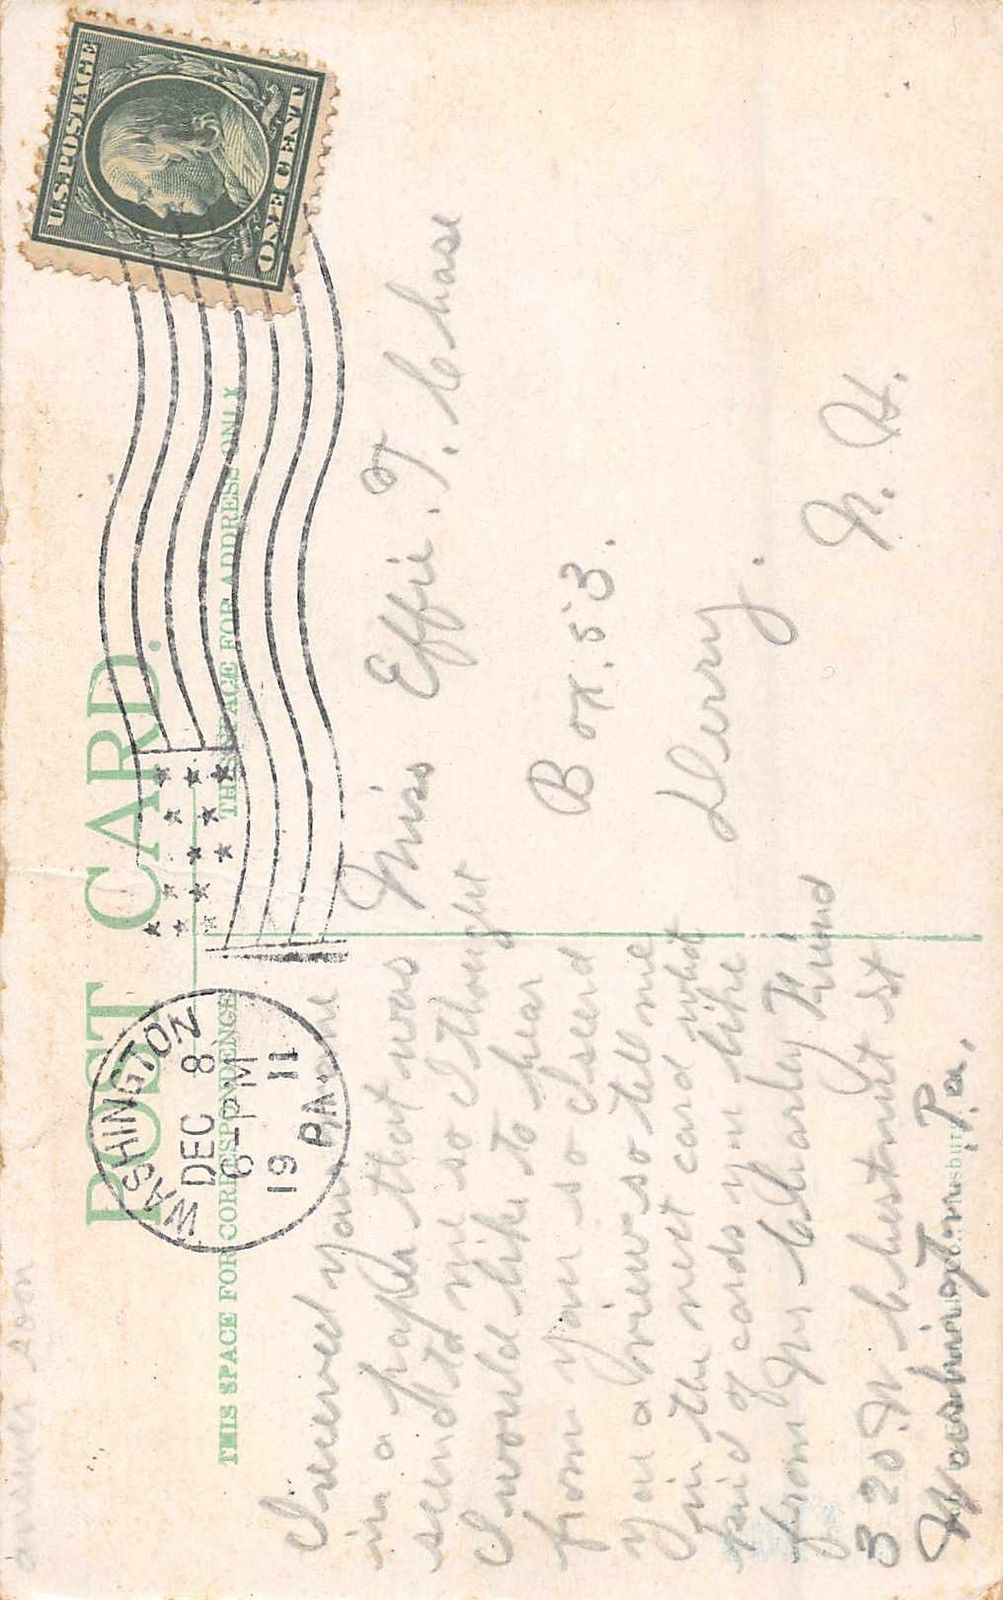 answer soon
POST CARD.
THIS SPACE FOR CORRESPONDENCE
THIS SPACE FOR ADDRESS ONLY
U.S. POSTAGE
ONE CENT
WASHINGTON
DEC 8
6 PM
19 11
PA.
I received your name
in a paper that was
send to me so I thought
I would like to hear
from you so I seend
you a view so tell me
in the next card what
kind of cards you like
from Mr Charley Friend
320 N Chestnut st
Washington Pa.
Miss Effie. T. Chase
Box. 53.
Derry.
N. H.